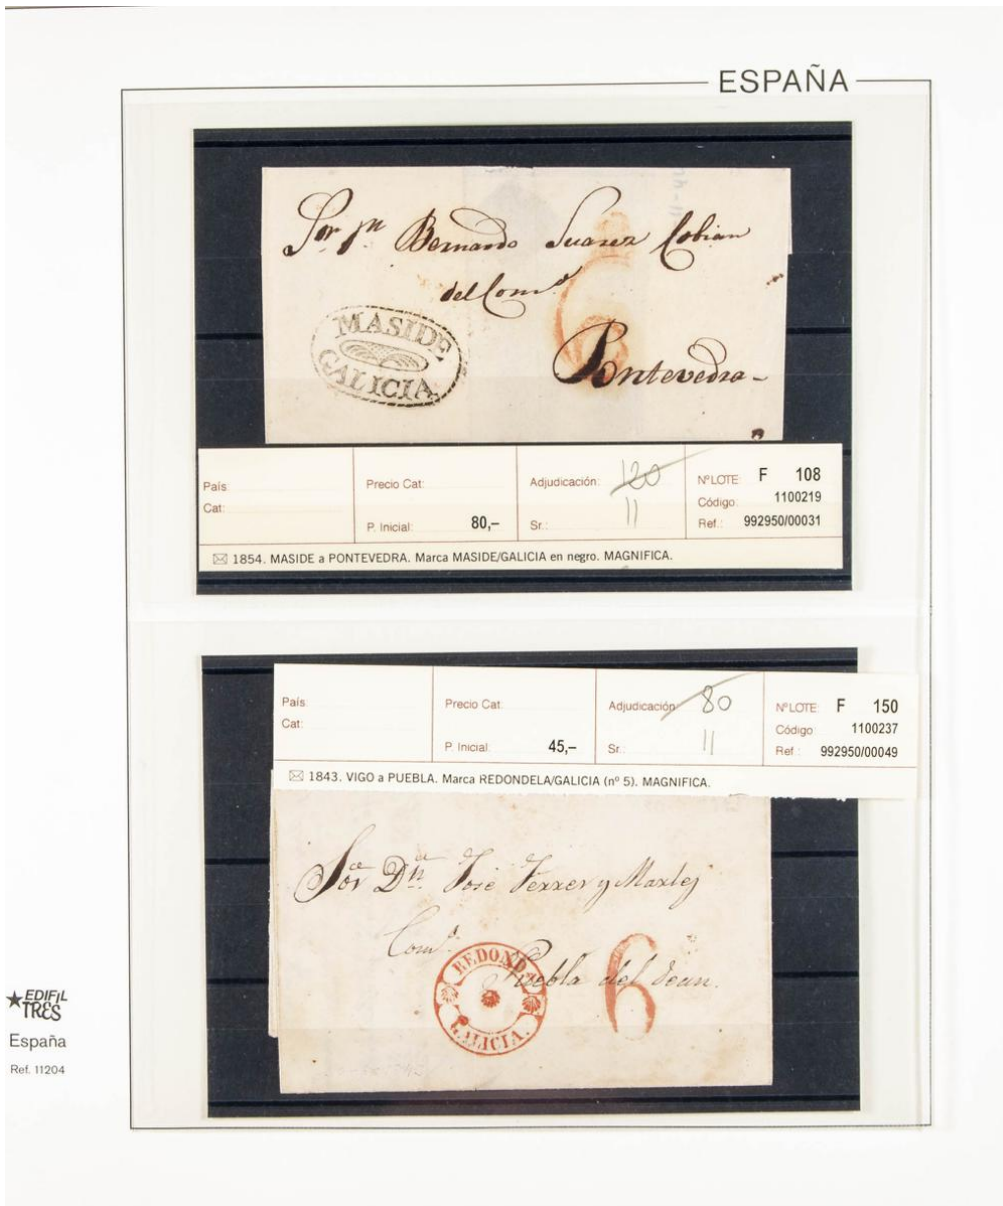 ESPAÑA
Sor Dn Bernardo Suarez Cobian
del Como
Pontevedra
6
MASIDE
GALICIA
País:
Cat:
Precio Cat:
P. Inicial: 80,–
Adjudicación: 120
Sr.: 11
Nº LOTE: F 108
Código: 1100219
Ref.: 992950/00031
1854. MASIDE a PONTEVEDRA. Marca MASIDE/GALICIA en negro. MAGNIFICA.
País:
Cat:
Precio Cat:
P. Inicial: 45,–
Adjudicación: 80
Sr.: 11
Nº LOTE: F 150
Código: 1100237
Ref.: 992950/00049
1843. VIGO a PUEBLA. Marca REDONDELA/GALICIA (nº 5). MAGNIFICA.
Dn José Ferrer y
Puebla del Dean.
6
GALICIA.
EDIFIL
TRES
España
Ref. 11204